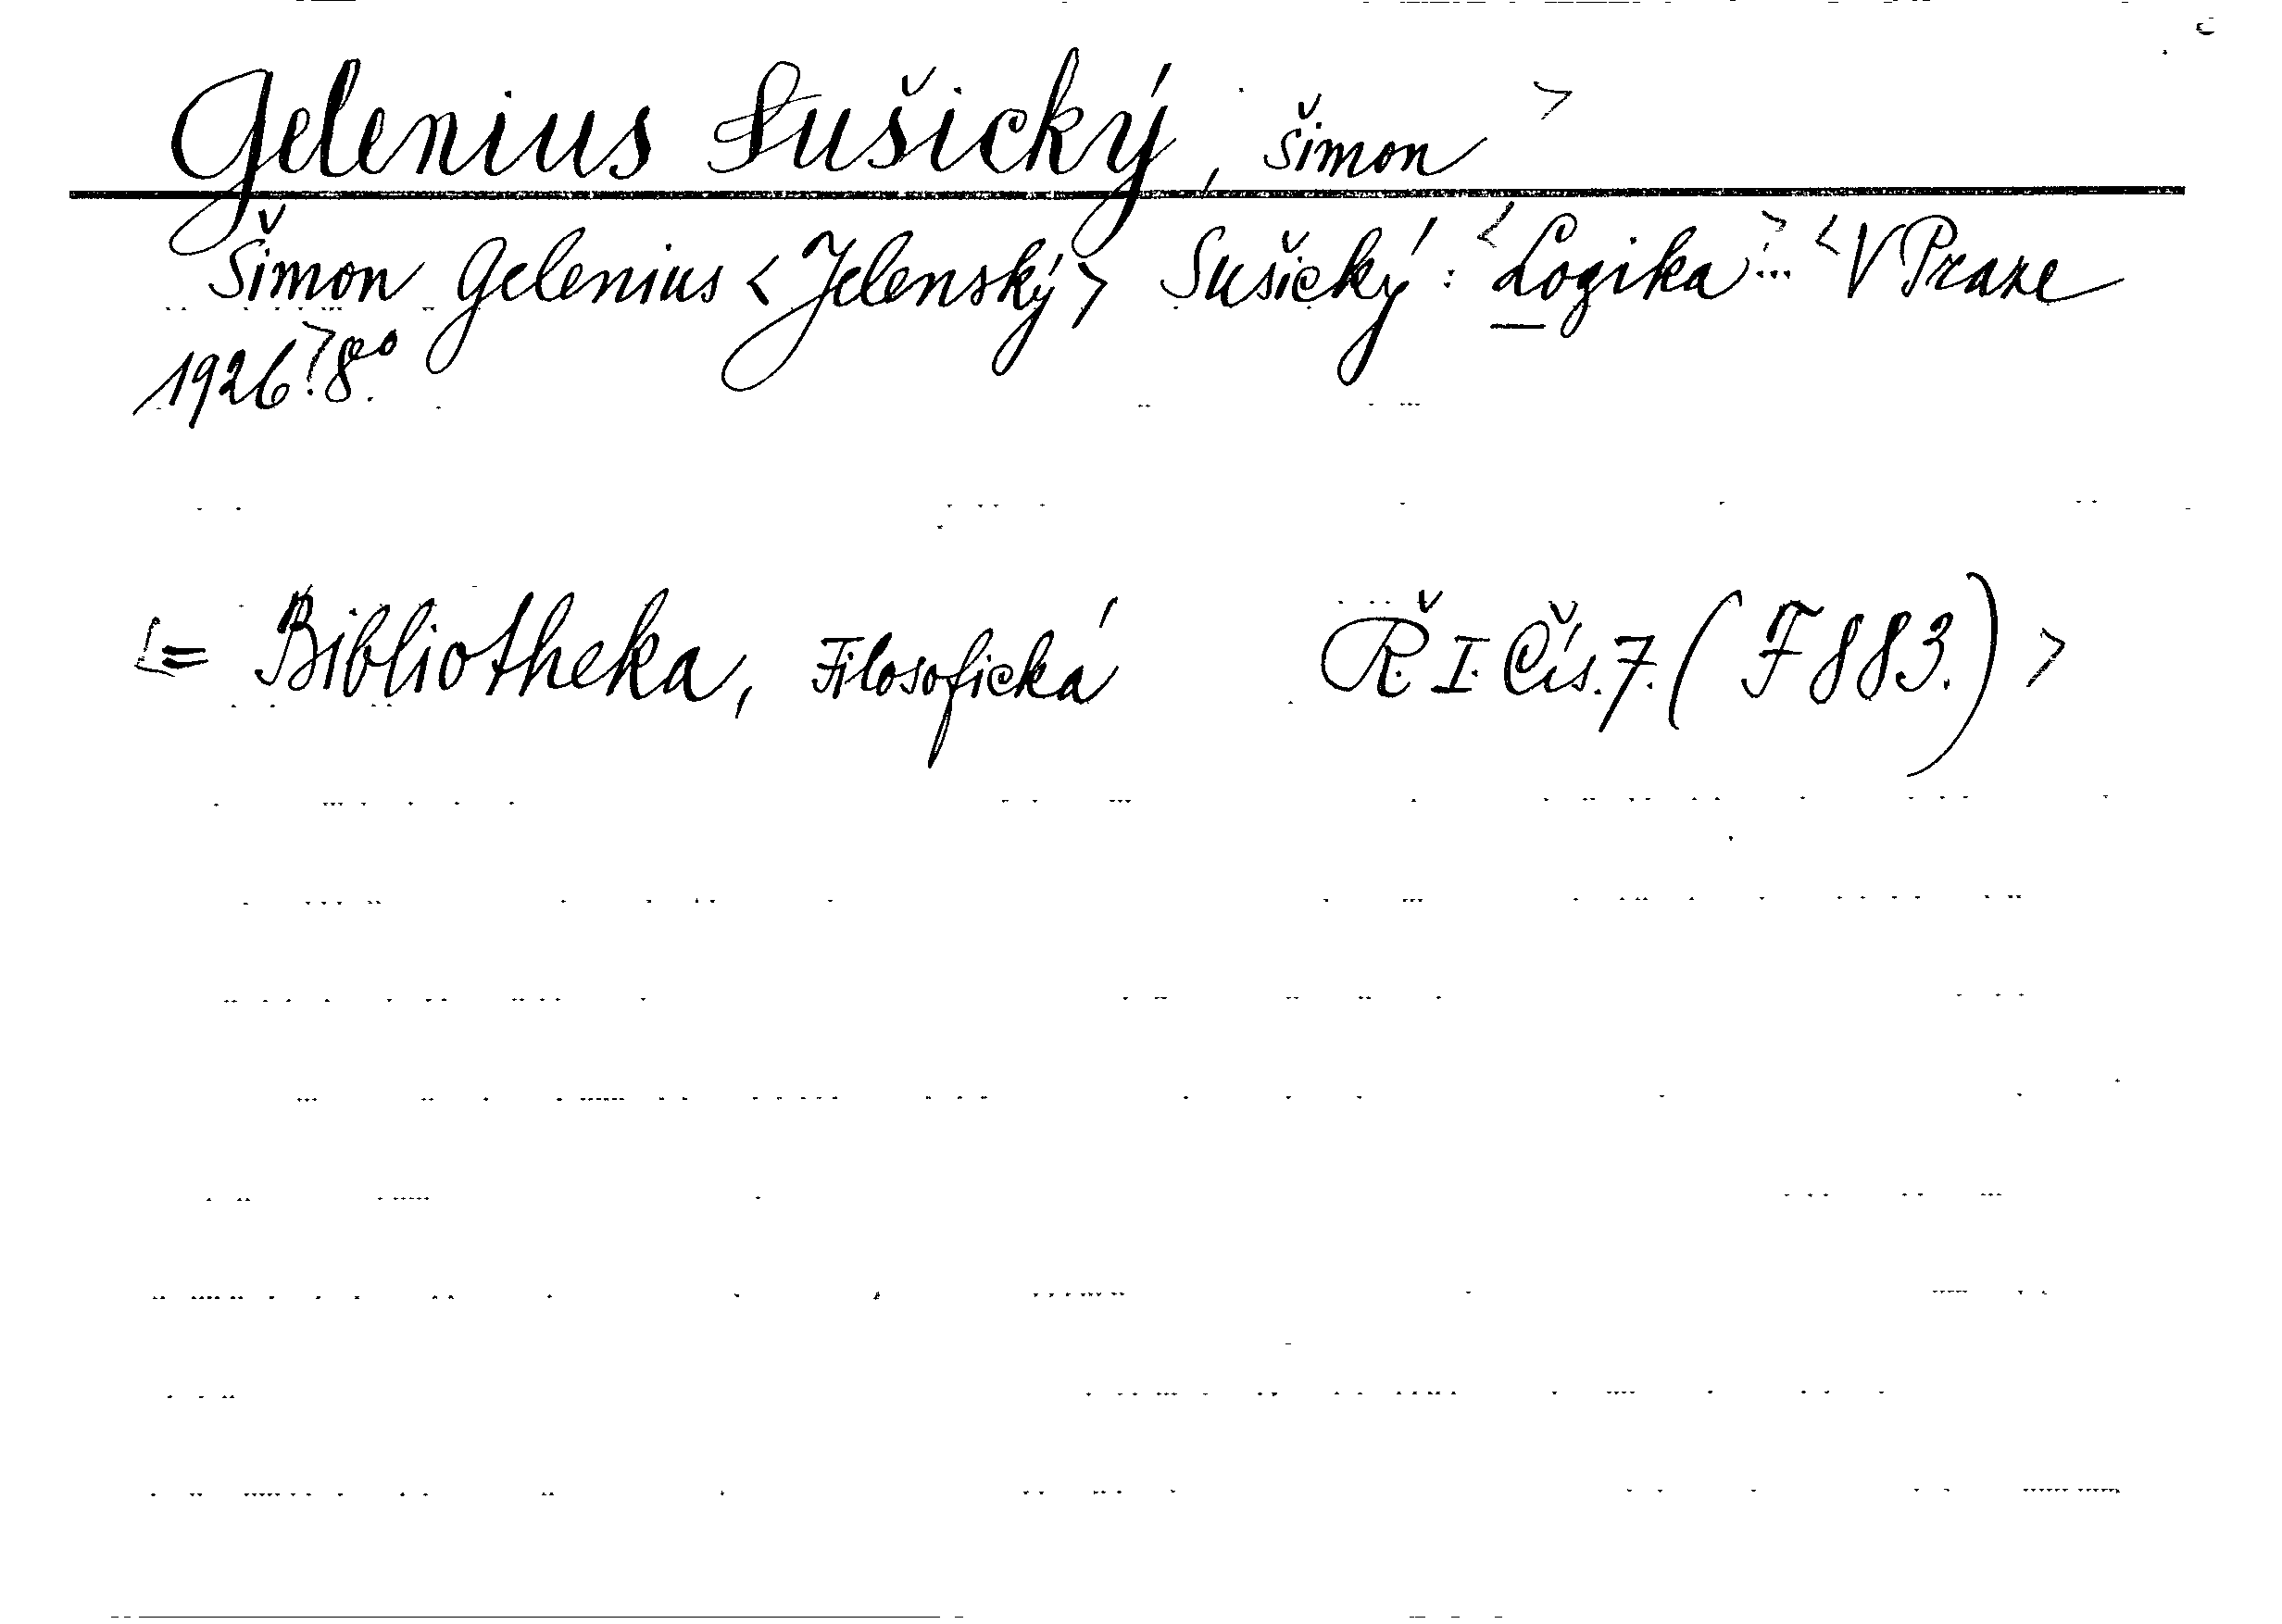 Gelenius Sušický, Šimon >
Šimon Gelenius < Jelenský > Sušický: < Logika > ... < V Praze
1926 >. 8°.
< = Bibliotheka, Filosofická Ř. I. Čís. 7. ( F 883.) >